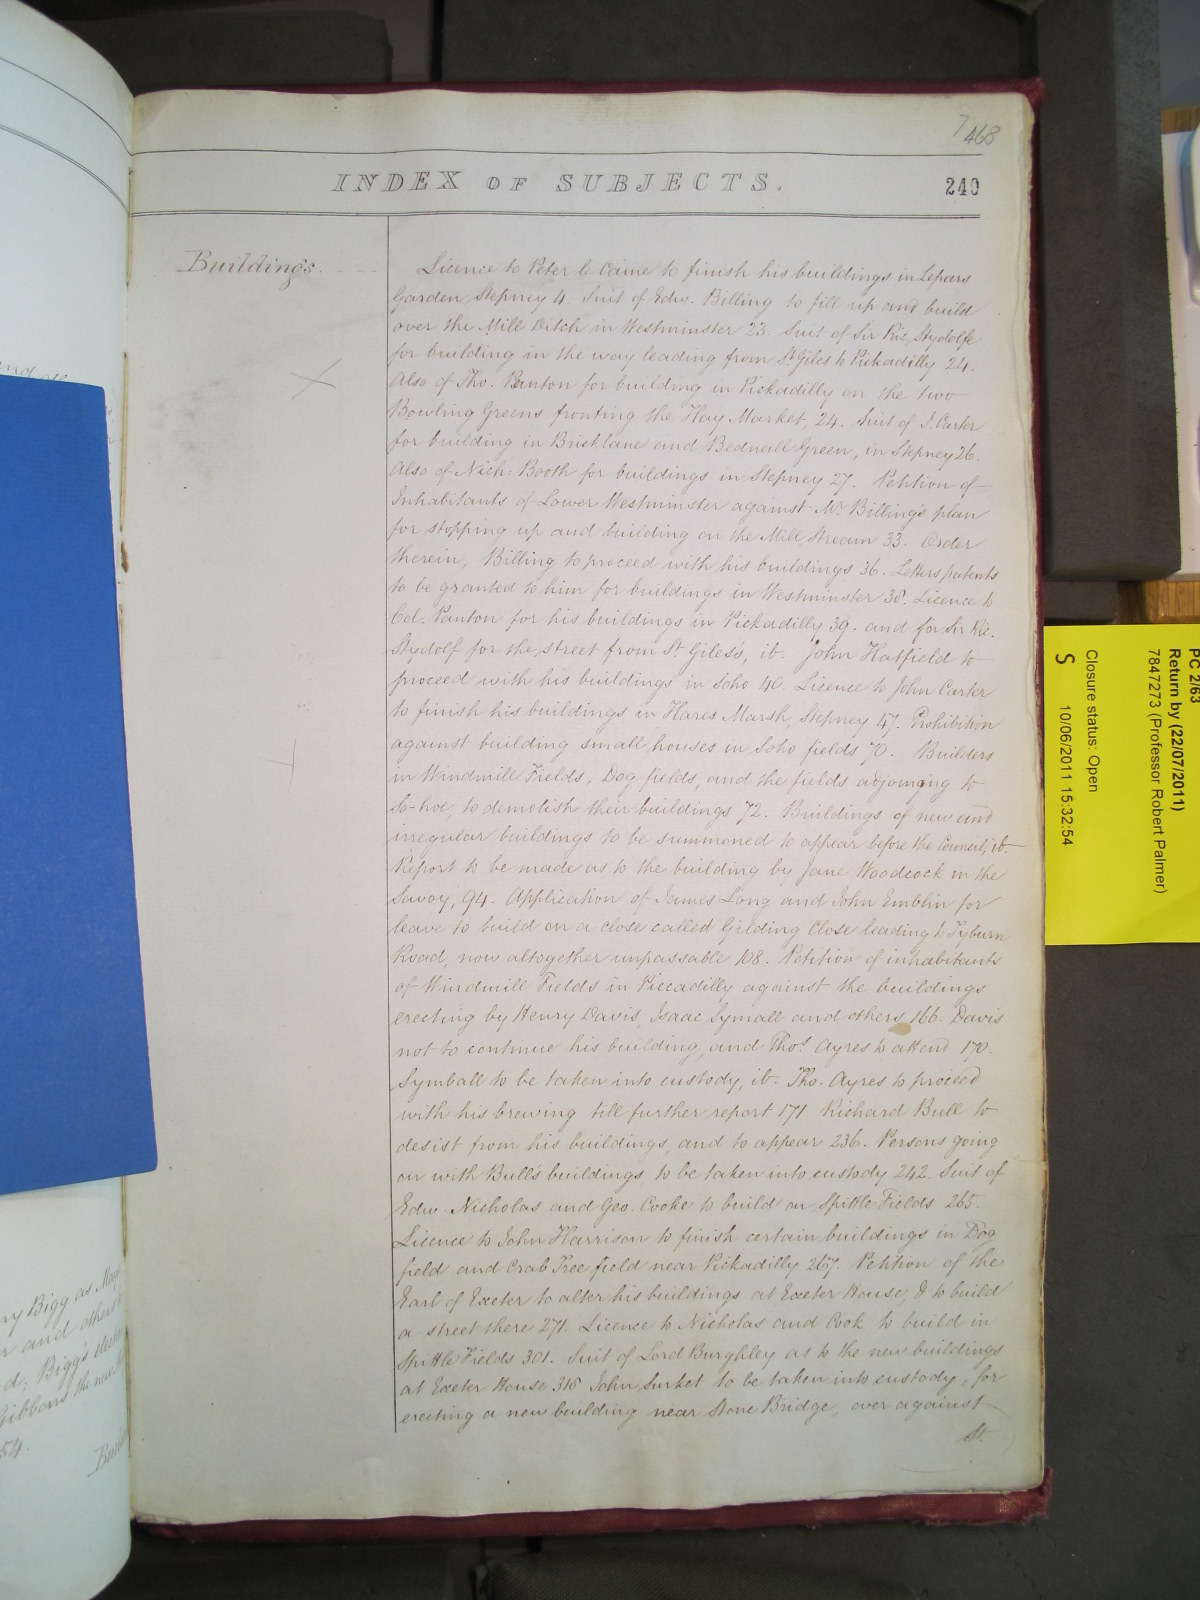 7
468
INDEX OF SUBJECTS.
240
Buildings.
Licence to Peter le Caine to finish his buildings in Lepars
Garden, Stepney 4. Suit of Edw. Billing to fill up and build
over the Mill Ditch in Westminster 23. Suit of Sir Ric. Stydolfe
for building in the way leading from St Giles to Pickadilly 24.
Also of Tho. Panton for building in Pickadilly on the two
Bowling Greens fronting the Hay Market, 24. Suit of J. Carter
for building in Bricklane and Bednall Green, in Stepney 26.
Also of Nich: Booth for buildings in Stepney 27. Petition of
Inhabitants of Lower Westminster against Mr Billing's plan
for stopping up and building on the Mill Stream 33. Order
therein, Billing to proceed with his buildings 36. Letters patents
to be granted to him for buildings in Westminster 38. Licence to
Col. Panton for his buildings in Pickadilly 39. and for Sir Ric.
Stydolf for the street from St Giles's, ib. John Hatfield to
proceed with his buildings in Soho 40. Licence to John Carter
to finish his buildings in Hares Marsh, Stepney 47. Prohibition
against building small houses in Soho fields 70. Builders
in Windmill Fields, Dog fields, and the fields adjoining to
So-hoe, to demolish their buildings 72. Buildings of new and
irregular buildings to be summoned to appear before the Council, ib.
Report to be made as to the building by Jane Woodcock in the
Savoy, 94. Application of James Long and John Emblin for
leave to build on a close called Gilding Close leading to Tyburn
Road, now altogether unpassable 108. Petition of inhabitants
of Windmill Fields in Piccadilly against the buildings
erecting by Henry Davis, Isaac Symall and others 166. Davis
not to continue his building, and Thos. Ayres to attend 170.
Symball to be taken into custody, ib. Tho. Ayres to proceed
with his brewing till further report 171. Richard Bull to
desist from his buildings, and to appear 236. Persons going
on with Bull's buildings to be taken into custody 242. Suit of
Edw. Nicholas and Geo. Cooke to build on Spittle Fields 265.
Licence to John Harrison to finish certain buildings in Dog
field and Crab Tree field near Pickadilly 267. Petition of the
Earl of Exeter to alter his buildings at Exeter House, & to build
a street there 271. Licence to Nicholas and Cook to build in
Spittle Fields 301. Suit of Lord Burghley as to the new buildings
at Exeter House 318 John Surket to be taken into custody, for
erecting a new building near Stone Bridge, over against
St.
PC 2/63
Return by (22/07/2011)
7847273 (Professor Robert Palmer)
Closure status: Open
S 10/06/2011 15:32:54
ry Bigg as May
and others
d; Bigg's
Gibbons the new
54.